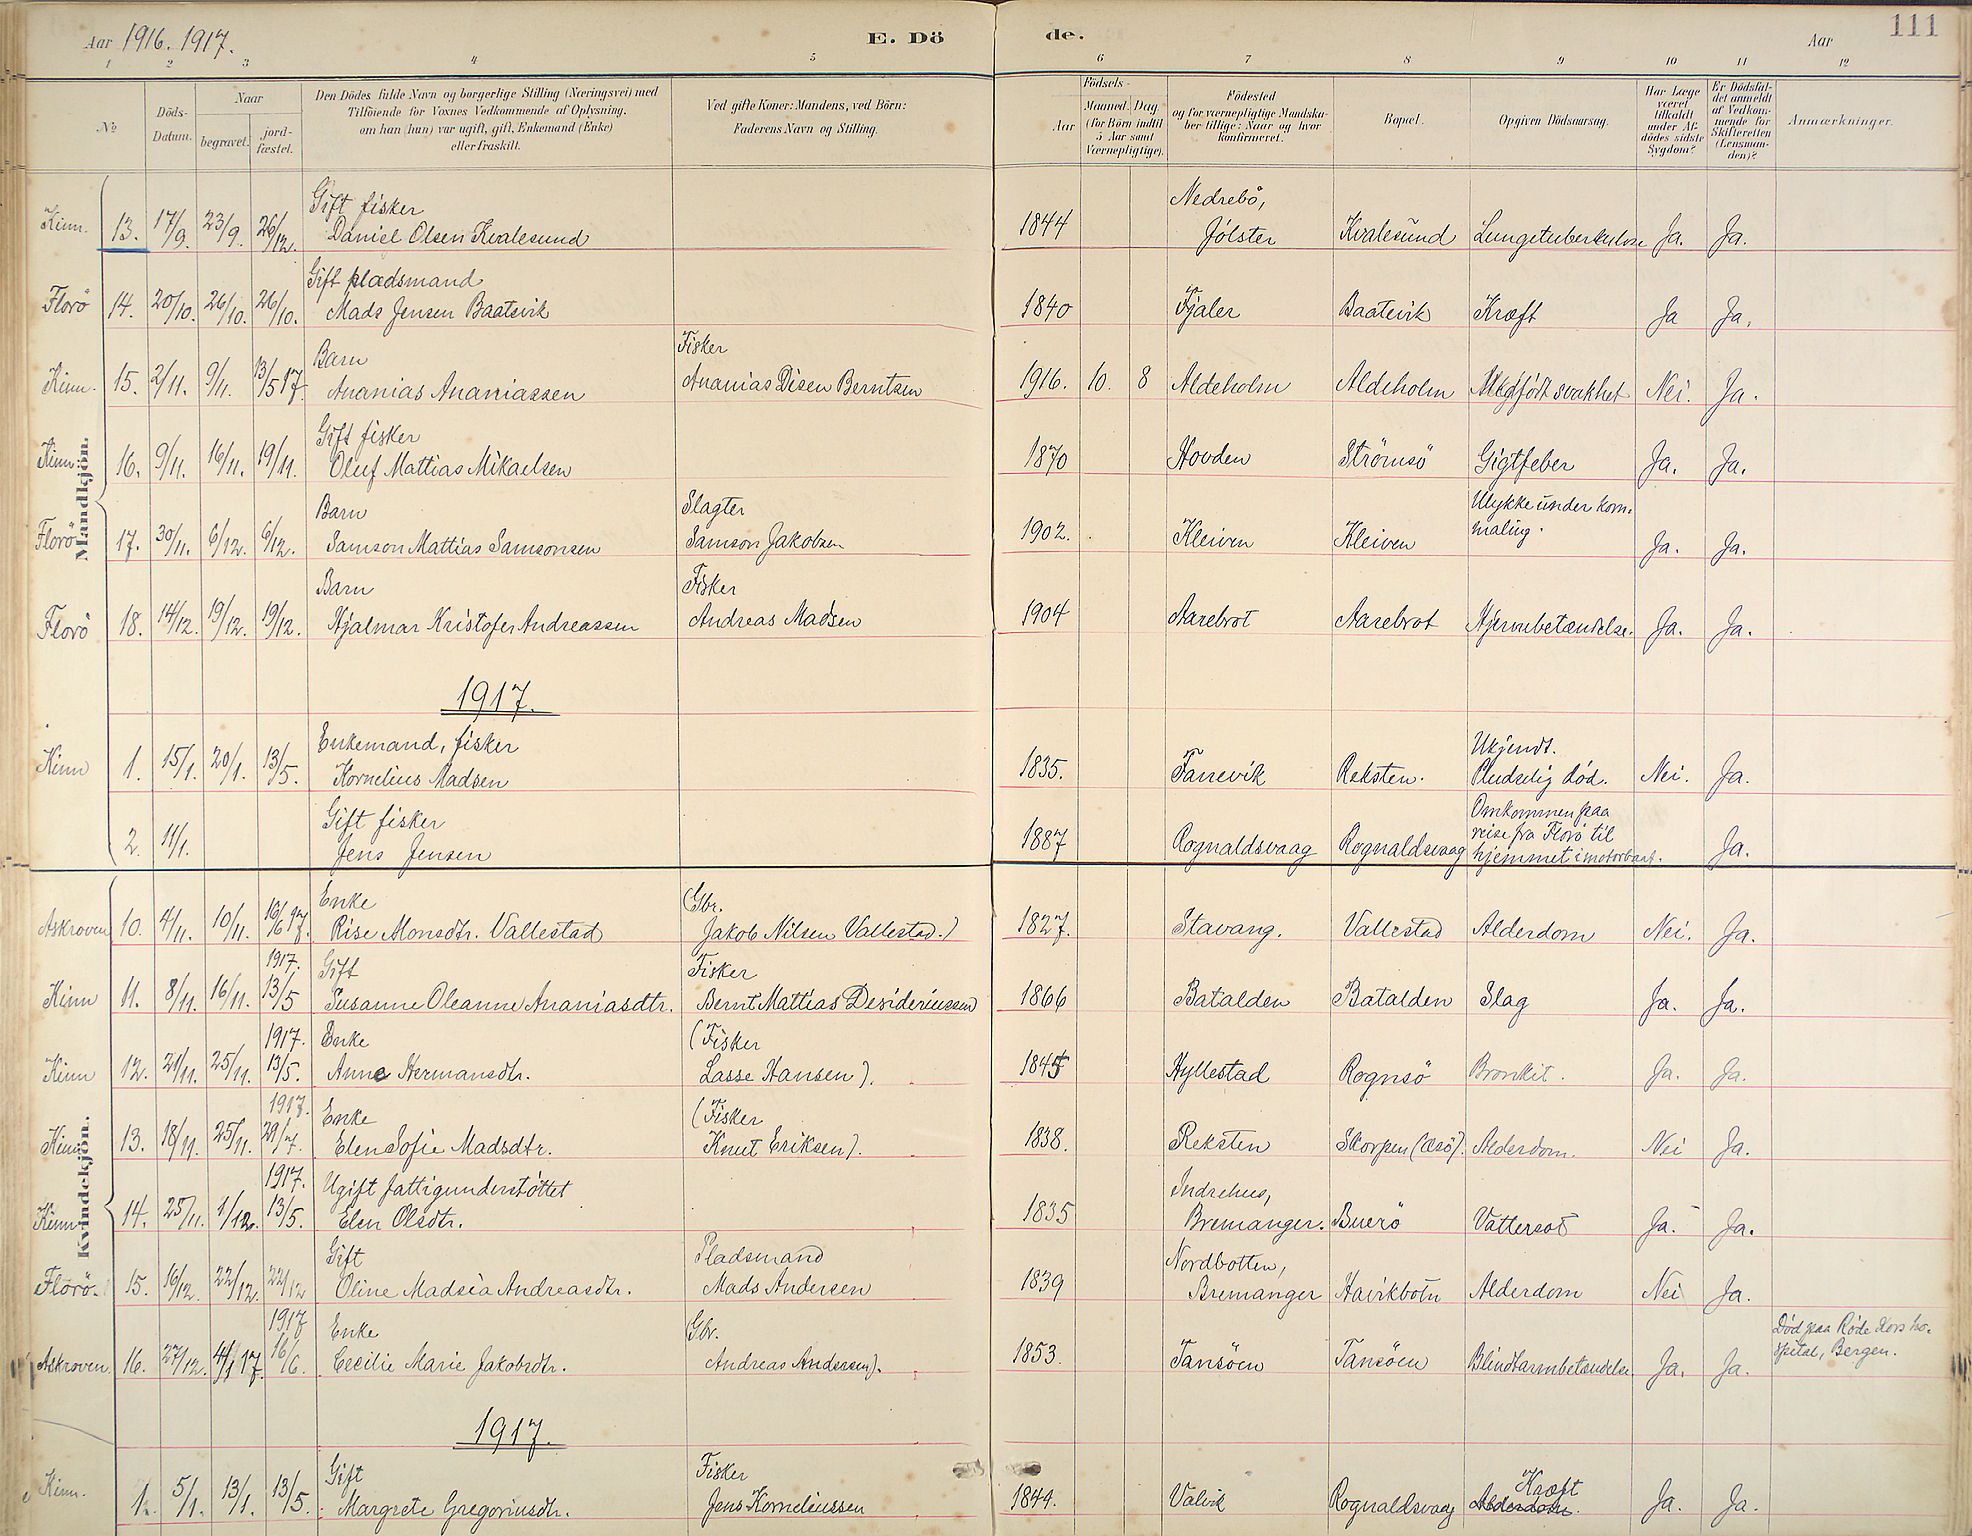 Aar 1916. 1917. E. Dö de. Aar 111
1 2 3 4 5 6 7 8 9 10 11 12
No
Döds-
Datum.
Naar
begravet.
jord-
fæstet.
Den Dödes fulde Navn og borgerlige Stilling (Næringsvei) med
Tilföiende for Voxnes Vedkommende af Oplysning,
om han (hun) var ugift, gift, Enkemand (Enke)
eller fraskilt.
Ved gifte Koner: Mandens, ved Börn:
Faderens Navn og Stilling.
Födsels-
Aar
Maaned. Dag.
(for Börn indtil
5 Aar samt
Værnepligtige).
Födested
og for værnepligtige Mandska-
ber tillige: Naar og hvor
konfirmeret.
Bopæl.
Opgiven Dödsaarsag.
Har Læge
været
tilkaldt
under Af-
dödes sidste
Sygdom?
Er Dödsfal-
det anmeldt
af Vedkom-
mende for
Skifteretten
(Lensman-
den)?
Anmærkninger.
Mandkjön.
Gift fisker Nedrebö,
Kinn. 13. 17/9. 23/9. 26/12. Daniel Olsen Kvalesund 1844 Jølster Kvalesund Lungetuberkulose Ja. Ja.
Gift pladsmand
Florö 14. 20/10. 26/10. 26/10. Mads Jensen Baatevik 1840 Fjaler Baatevik Kræft Ja Ja.
Barn Fisker
Kinn. 15. 2/11. 9/11. 13/5 17. Ananias Ananiassen Ananias Disen Berntsen 1916. 10. 8 Aldeholm Aldeholm Medfødt svakhet Nei. Ja.
Gift fisker
Kinn 16. 9/11. 16/11. 19/11. Oluf Mattias Mikaelsen 1870 Hovden Strömsö Gigtfeber Ja. Ja.
Barn Slagter Ulykke under korn-
Florö 17. 30/11. 6/12. 6/12. Samson Mattias Samsonsen Samson Jakobsen 1902. Kleiven Kleiven maling. Ja. Ja.
Barn Fisker
Florö 18. 14/12. 19/12. 19/12. Hjalmar Kristofer Andreassen Andreas Madsen 1904 Aarebrot Aarebrot Hjernebetændelse. Ja. Ja.
1917.
Enkemand, fisker Ukjendt.
Kinn 1. 15/1. 20/1. 13/5. Kornelius Madsen 1835. Fanevik Reksten. Pludselig död. Nei. Ja.
Gift fisker Omkommen paa
reise fra Florö til
2. 11/1. Jens Jensen 1887 Rognaldsvaag Rognaldsvaag hjemmet i motorbaat. Ja.
Kvindekjön.
Enke (Gbr.
Askroven 10. 4/11. 10/11. 16/6 17. Rise Monsdtr. Vallestad Jakob Nilsen Vallestad.) 1827. Stavang. Vallestad Alderdom Nei. Ja.
1917. Gift Fisker
Kinn 11. 8/11. 16/11. 13/5 Susanne Oleanne Ananiasdtr. Bernt Mattias Desideriussen 1866 Batalden Batalden Slag Ja. Ja.
1917. Enke (Fisker
Kinn 12. 21/11. 25/11. 13/5. Anne Hermansdtr. Lasse Hansen). 1845 Hyllestad Rognsö Bronkit. Ja. Ja.
1917. Enke (Fisker
Kinn 13. 18/11. 25/11. 29/7. Elen Sofie Madsdtr. Knut Eriksen). 1838. Reksten Skorpen Alderdom. Nei Ja.
1917. Ugift fattigunderstöttet Indrehus,
Kinn 14. 25/11. 1/12. 13/5. Elen Olsdtr. 1835 Bremanger. Buerö Vattersot Ja. Ja.
Gift Pladsmand Nordbotten,
Florö. 15. 16/12. 22/12. 22/12 Oline Madsea Andreasdtr. Mads Andersen 1839 Bremanger Havikbotn Alderdom Nei Ja.
1917 Enke (Gbr. Död paa Røde Kors ho-
Askroven. 16. 27/12. 4/1 17. 16/6. Cecilie Marie Jakobsdtr. Andreas Andersen). 1853. Tansöen Tansöen Blindtarmbetændelse. Ja. Ja. spital, Bergen.
1917.
Gift Fisker Kræft
Kinn. 1. 5/1. 13/1. 13/5. Margrete Gregoriusdtr. Jens Korneliussen 1844. Valvik Rognaldsvaag Alderdom. Ja. Ja.